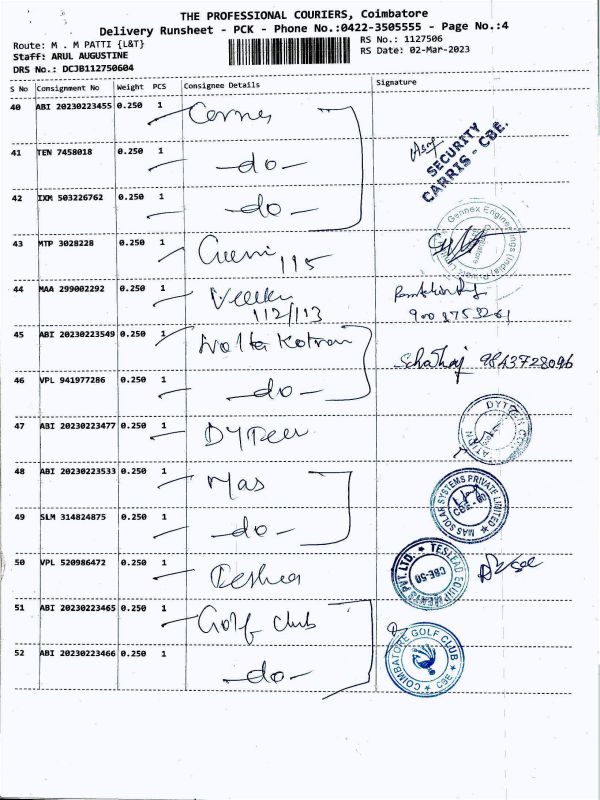 THE PROFESSIONAL COURIERS, Coimbatore
Delivery Runsheet - PCK - Phone No.:0422-3505555 - Page No.:4
Route: M . M PATTI {L&T}
RS No.: 1127506
Staff: ARUL AUGUSTINE
RS Date: 02-Mar-2023
DRS No.: DCJB112750604
S No Consignment No Weight PCS Consignee Details Signature
40 ABI 20230223455 0.250 1
41 TEN 7458018 0.250 1 -do-
SECURITY
CARRIS - CBE.
42 IXM 503226762 0.250 1 -do-
43 MTP 3028228 0.250 1 115
Gennex Engineerings (India) P
44 MAA 299002292 0.250 1
112/113
45 ABI 20230223549 0.250 1
46 VPL 941977286 0.250 1 -do-
9843728096
47 ABI 20230223477 0.250 1
48 ABI 20230223533 0.250 1 Mas
MAS SOLAR SYSTEMS PRIVATE LIMITED
49 SLM 314824875 0.250 1 -do-
50 VPL 520986472 0.250 1
TESLEAD EQUIPMENTS PVT. LTD.
CBE-50
51 ABI 20230223465 0.250 1 Golf club
52 ABI 20230223466 0.250 1 -do-
COIMBATORE GOLF CLUB
CBE